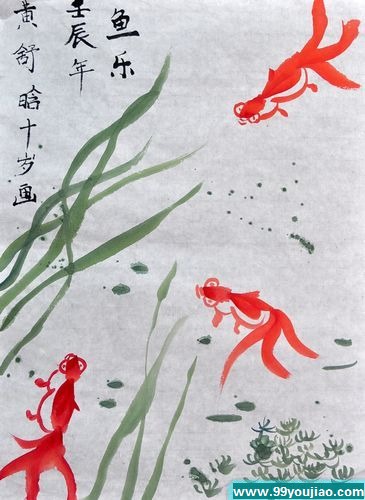 鱼乐
壬辰年
黄舒晗十岁画
www.99youjiao.com